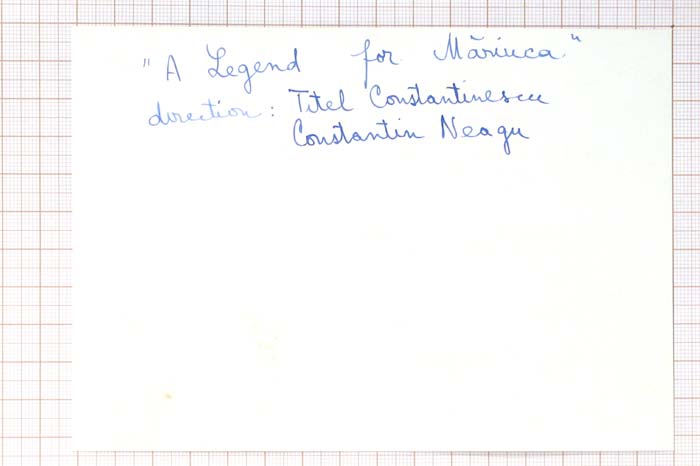 "A Legend for Măriuca"
direction: Titel Constantinescu
Constantin Neagu